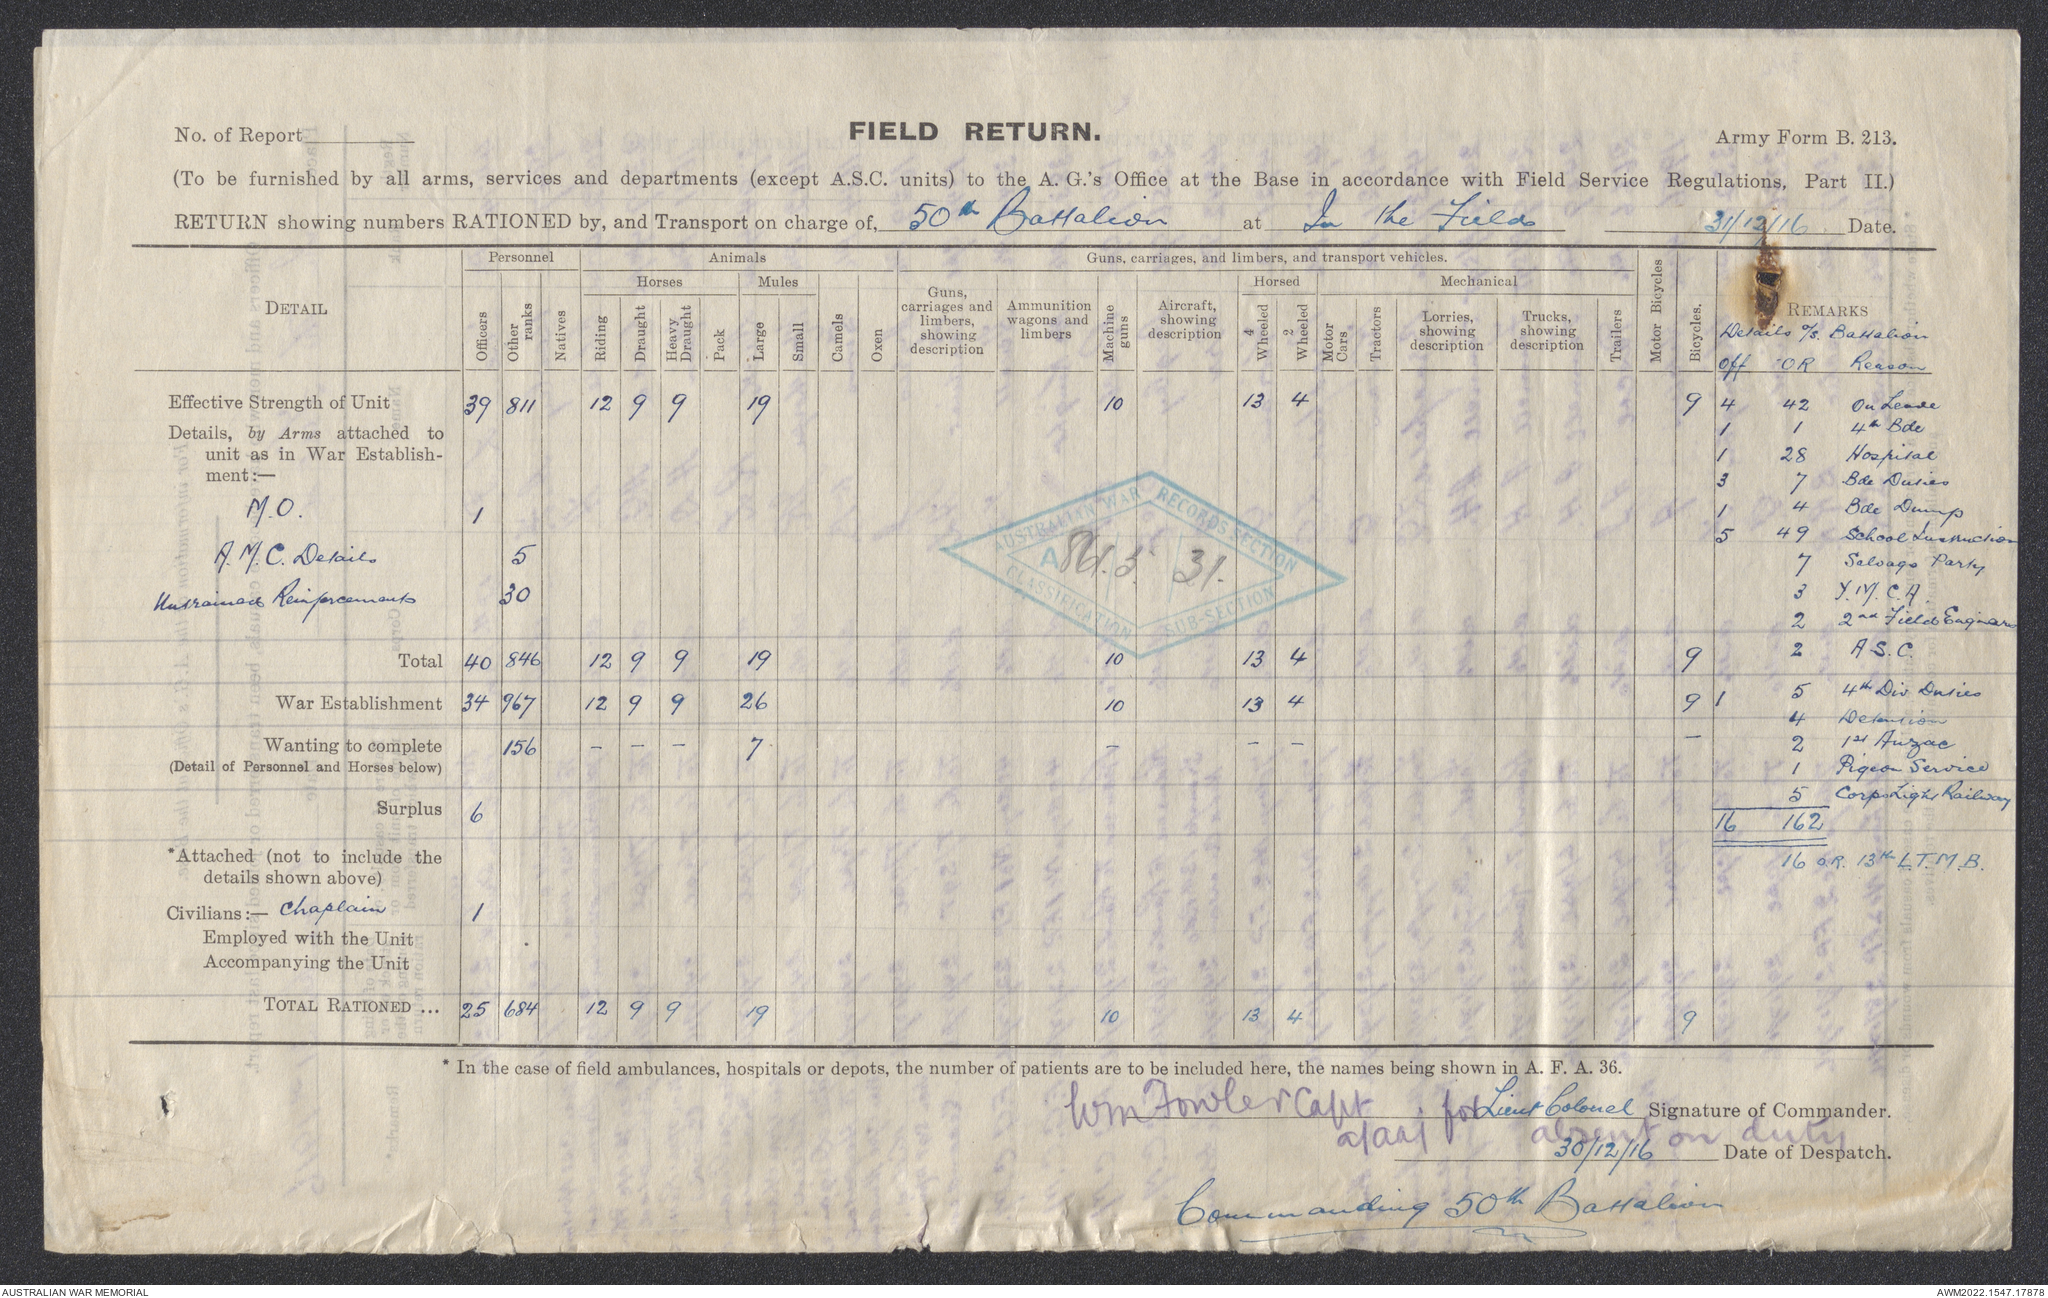 No. of Report
FIELD RETURN.
Army Form B. 213.
(To be furnished by all arms, services and departments (except A.S.C. units) to the A. G.'s Office at the Base in accordance with Field Service Regulations, Part II.)
RETURN showing numbers RATIONED by, and Transport on charge of, 50th Battalion at In the Field 31/12/16 Date.
DETAIL
Personnel
Animals
Guns, carriages, and limbers, and transport vehicles.
Horses
Mules
Horsed
Mechanical
Officers
Other ranks
Natives
Riding
Draught
Heavy Draught
Pack
Large
Small
Camels
Oxen
Guns, carriages and limbers, showing description
Ammunition wagons and limbers
Machine guns
Aircraft, showing description
4 Wheeled
2 Wheeled
Motor Cars
Tractors
Lorries, showing description
Trucks, showing description
Trailers
Motor Bicycles
Bicycles.
REMARKS
Details o/s. Battalion
Off OR Reason
Effective Strength of Unit 39 811 12 9 9 19 10 13 4 9
4 42 On Leave
Details, by Arms attached to
unit as in War Establish-
ment:—
1 1 4th Bde
1 28 Hospital
3 7 Bde Duties
M.O. 1
1 4 Bde Dump
5 49 School Instruction
A.M.C. Details 5
7 Salvage Party
Untrained Reinforcements 30
3 Y.M.C.A.
2 2nd Field Engineers
Total 40 846 12 9 9 19 10 13 4 9
2 A.S.C.
War Establishment 34 967 12 9 9 26 10 13 4 9
1 5 4th Div Duties
4 Detention
Wanting to complete 156 – – – 7 – – – –
(Detail of Personnel and Horses below)
2 1st Anzac
1 Pigeon Service
Surplus 6
5 Corps Light Railway
16 162
16 O.R. 13th L.T.M.B.
*Attached (not to include the
details shown above)
Civilians:— Chaplain 1
Employed with the Unit
Accompanying the Unit
TOTAL RATIONED ... 25 684 12 9 9 19 10 13 4 9
AUSTRALIAN WAR RECORDS SECTION
CLASSIFICATION SUB-SECTION
31.
* In the case of field ambulances, hospitals or depots, the number of patients are to be included here, the names being shown in A. F. A. 36.
Wm Fowler Capt for Lieut Colonel Signature of Commander.
a/adj absent on duty
30/12/16 Date of Despatch.
Commanding 50th Battalion
AUSTRALIAN WAR MEMORIAL
AWM2022.1547.17878